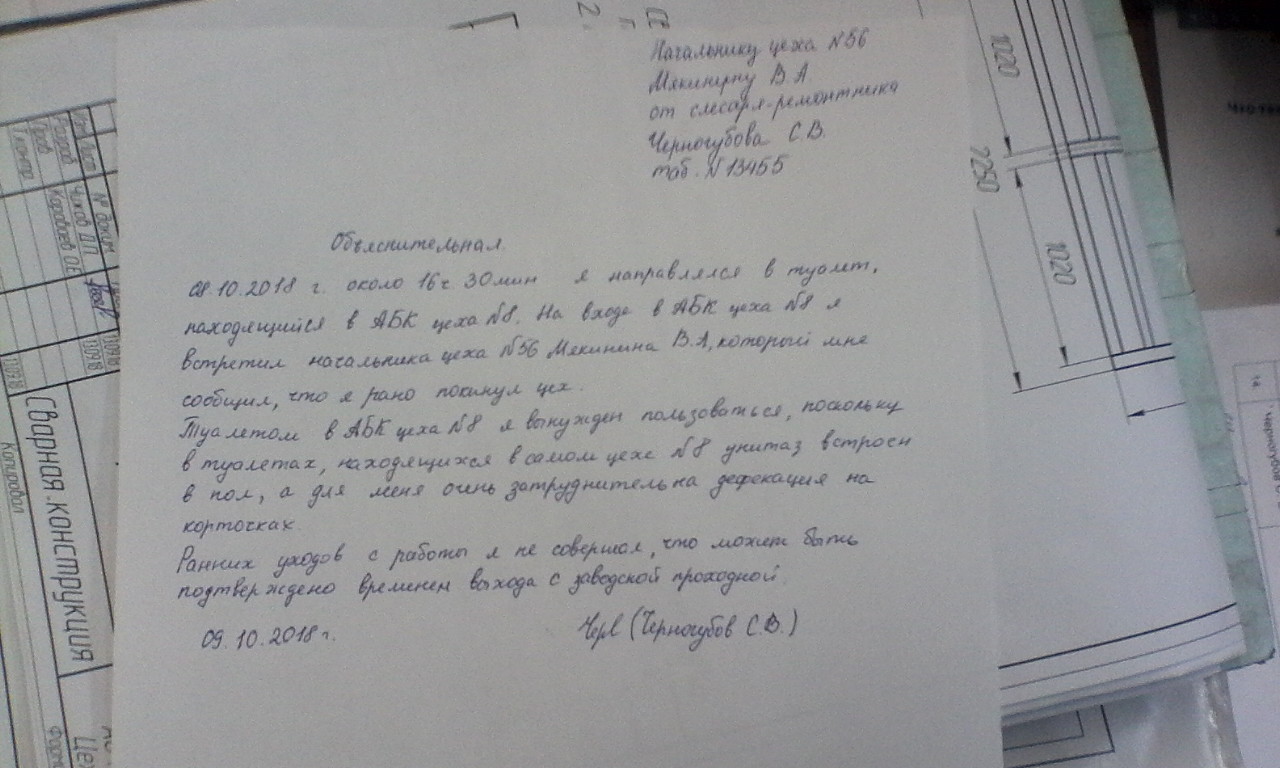 Начальнику цеха №56
Мякинину В.А
от слесаря-ремонтника
Черногубова С.В.
таб. №13455
Объяснительная.
08.10.2018 г. около 16ч. 30мин я направлялся в туалет,
находящийся в АБК цеха №8. На входе в АБК цеха №8 я
встретил начальника цеха №56 Мякинина В.А, который мне
сообщил, что я рано покинул цех.
Туалетом в АБК цеха №8 я вынужден пользоваться, поскольку
в туалетах, находящихся в самом цехе №8 унитаз встроен
в пол, а для меня очень затруднительна дефекация на
корточках.
Ранних уходов с работы я не совершал, что может быть
подтверждено временем выхода с заводской проходной.
09.10.2018г. (Черногубов С.В.)
Изм Лист № докум
Разраб Чиков Д.П.
Пров Караваев О.Е
Т.контр
Сварная конструкция
Копировал
1020
7250
1020